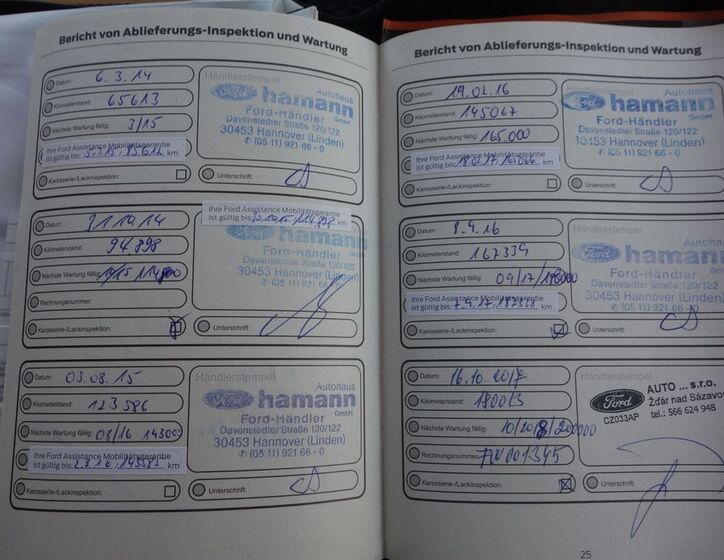 Bericht von Ablieferungs-Inspektion und Wartung
Datum: 6.3.14
Kilometerstand: 65613
Nächste Wartung fällig: 3/15
Ihre Ford Assistance Mobilitätsgarantie
ist gültig bis: 5.3.15, 85612 km
Karosserie-/Lackinspektion:
Händlerstempel
Autohaus
Ford hamann GmbH
Ford-Händler
Davenstedter Straße 120/122
30453 Hannover (Linden)
✆ (05 11) 921 66 - 0
Unterschrift:
Datum: 31.10.14
Kilometerstand: 94.898
Nächste Wartung fällig:
Rechnungsnummer:
Karosserie-/Lackinspektion:
Ihre Ford Assistance Mobilitätsgarantie
ist gültig bis: km
Ford hamann
Ford-Händler
Davenstedter Straße 120/122
30453 Hannover (Linden)
✆ (05 11) 921 66 - 0
Unterschrift:
Datum: 03.08.15
Kilometerstand: 123586
Nächste Wartung fällig: 08/16 143000
Ihre Ford Assistance Mobilitätsgarantie
ist gültig bis: 2.8.16, 143585 km
Karosserie-/Lackinspektion:
Händlerstempel
Autohaus
Ford hamann GmbH
Ford-Händler
Davenstedter Straße 120/122
30453 Hannover (Linden)
✆ (05 11) 921 66 - 0
Unterschrift:
Bericht von Ablieferungs-Inspektion und Wartung
Datum: 19.02.16
Kilometerstand: 145067
Nächste Wartung fällig: 165.000
Ihre Ford Assistance Mobilitätsgarantie
ist gültig bis: 18.02.17, 165066 km
Karosserie-/Lackinspektion:
Autohaus
Ford hamann GmbH
Ford-Händler
Davenstedter Straße 120/122
30453 Hannover (Linden)
✆ (05 11) 921 66 - 0
Unterschrift:
Datum: 8.9.16
Kilometerstand: 167339
Nächste Wartung fällig: 09/17/
Ihre Ford Assistance Mobilitätsgarantie
ist gültig bis: 7.9.17, 187338 km
Karosserie-/Lackinspektion:
Ford hamann
Ford-Händler
Davenstedter Straße 120/122
30453 Hannover (Linden)
✆ (05 11) 921 66 - 0
Unterschrift:
Datum: 16.10 2017
Kilometerstand: 180013
Nächste Wartung fällig: 10/2018/200000
Rechnungsnummer:
Karosserie-/Lackinspektion:
Händlerstempel
Ford
CZ033AP
AUTO ... s.r.o.
Žďár nad Sázavou
tel.: 566 624 948
Unterschrift:
25